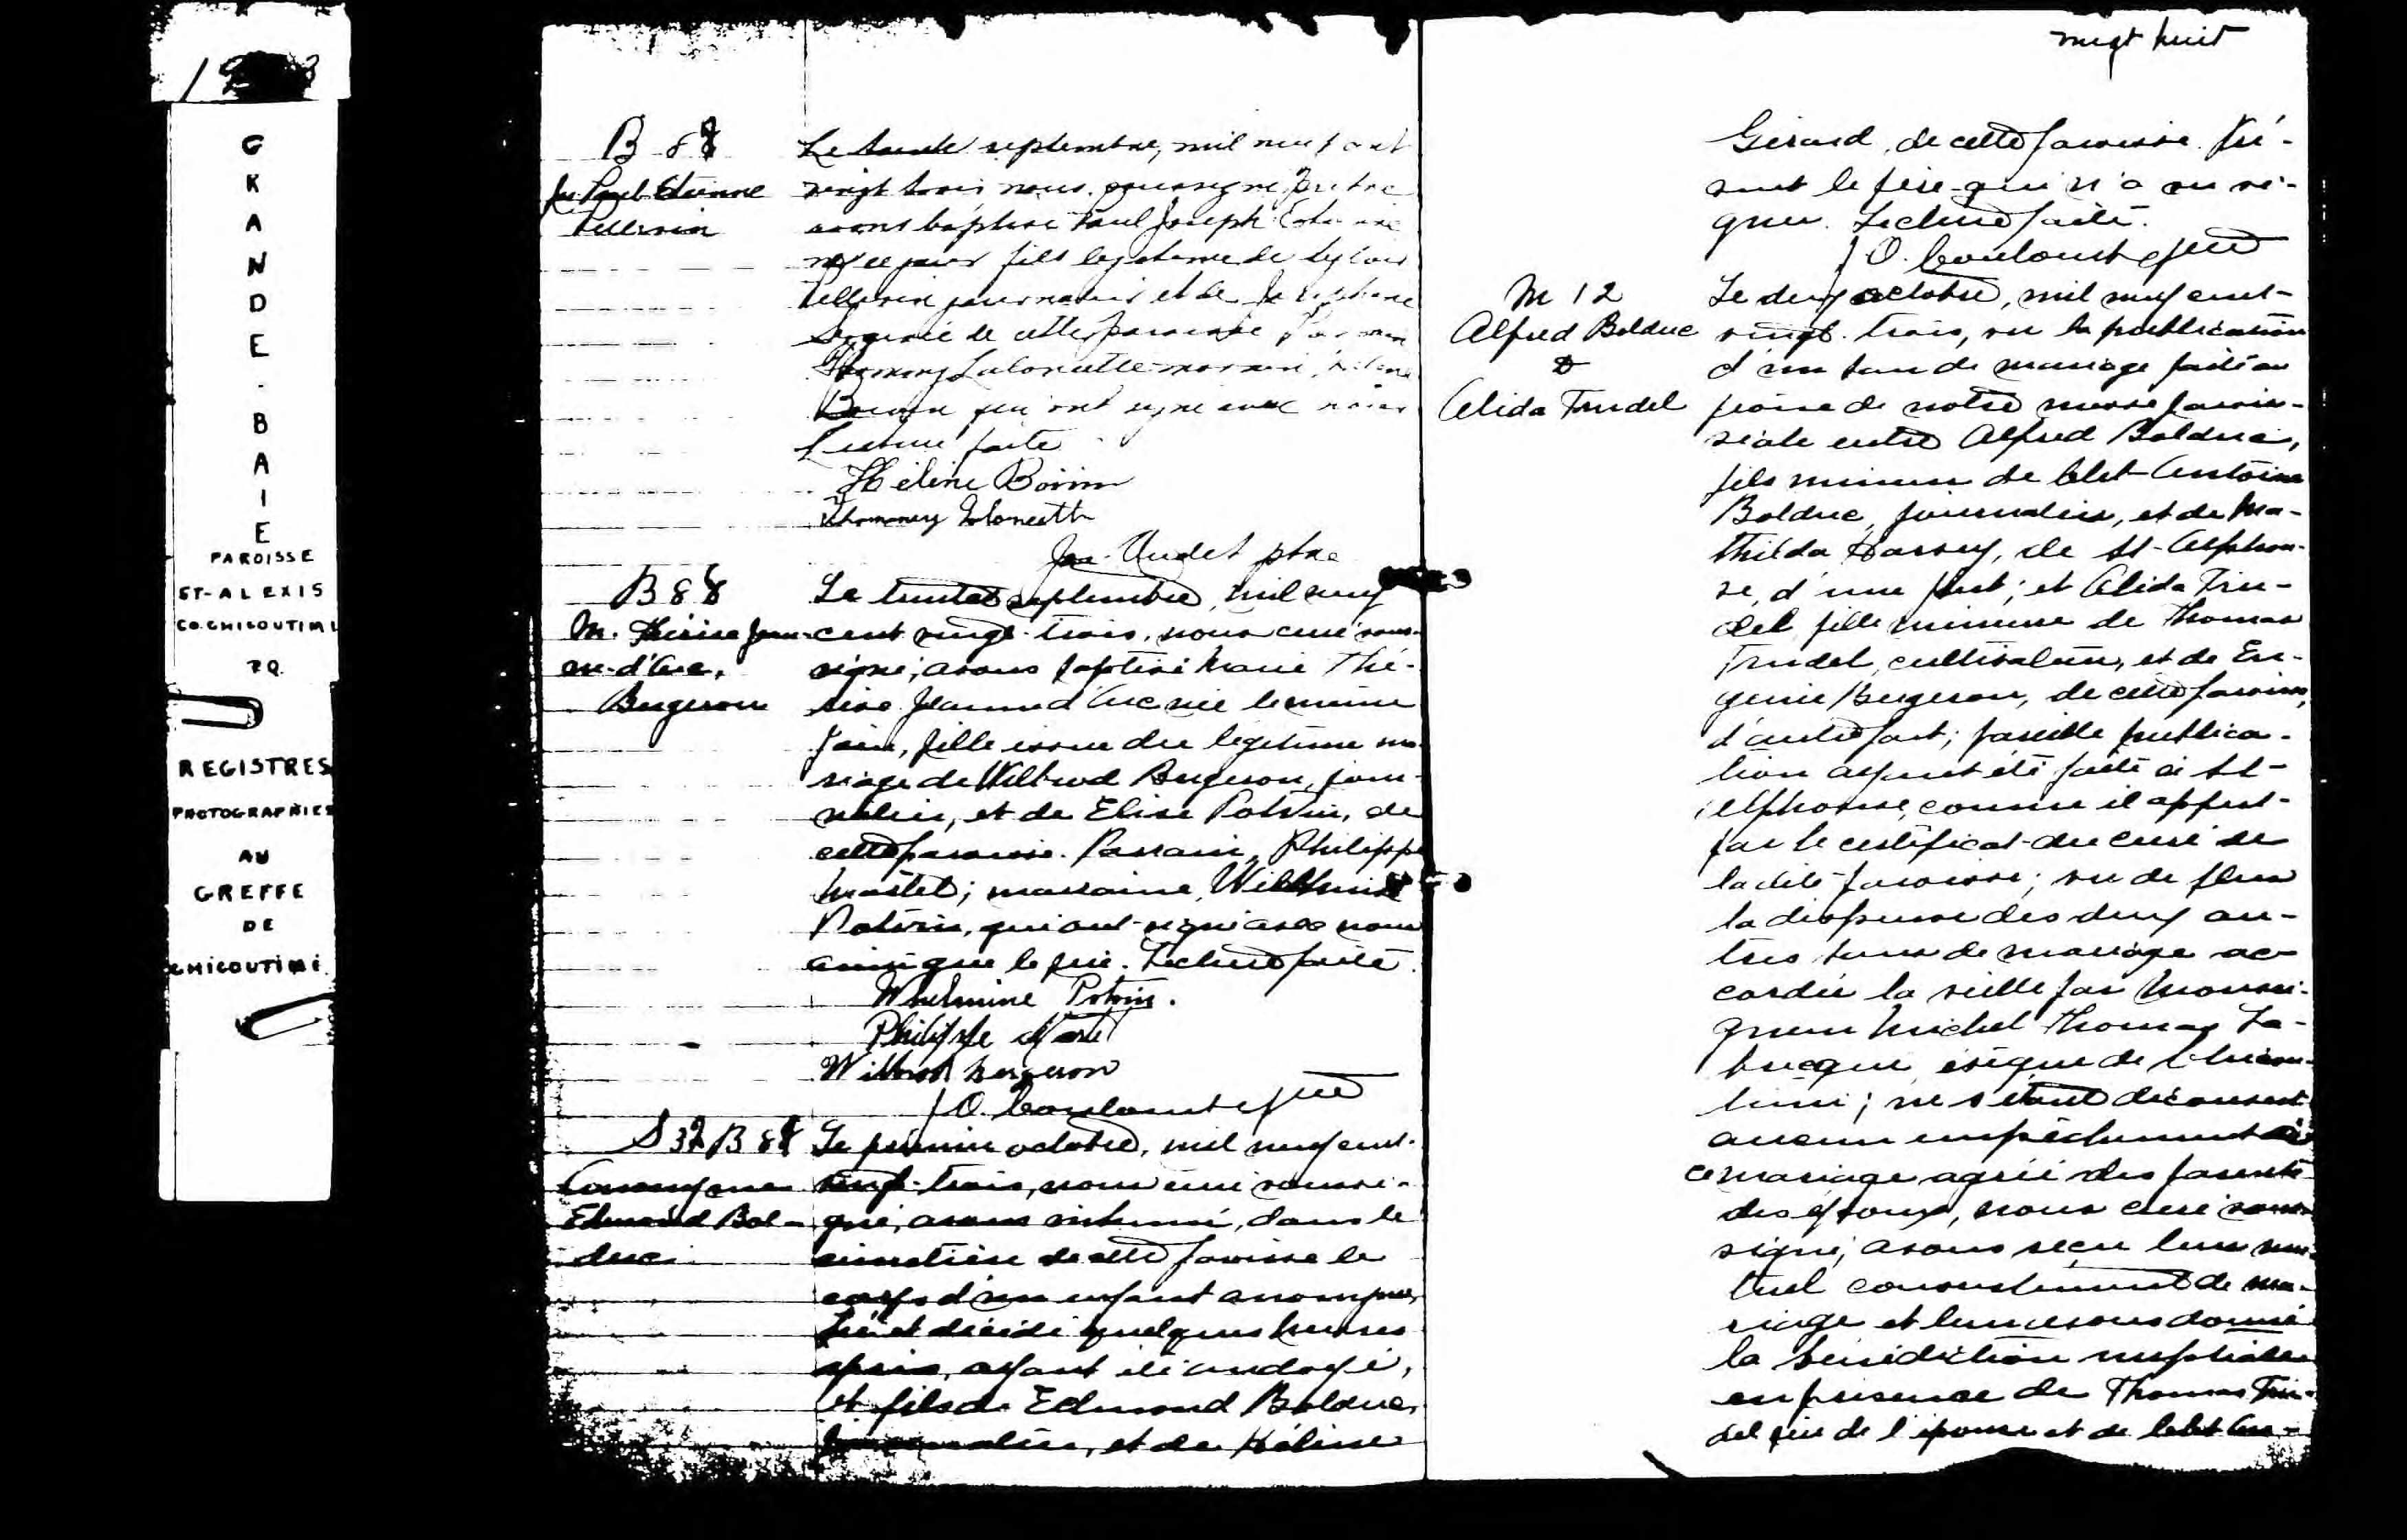 GRANDE-BAIE
PAROISSE
ST-ALEXIS
CO. CHICOUTIMI
P.Q.
REGISTRES
PHOTOGRAPHIES
AU
GREFFE
DE
CHICOUTIMI
B 88
Jos Paul Etienne
Pellerin
Le trente septembre, mil neuf cent
vingt trois nous, soussigné prêtre
avons baptisé Paul Joseph Etienne
né ce jour fils légitime de
Pellerin journalier et de Joséphine
de cette paroisse Parrain
Thommy marraine, Hélène
Boivin qui ont signé avec nous
Lecture faite
Hélène Boivin
Thommy
Jos. Audet ptre
B 88
M. Thérèse Jean-
ne-d'Arc,
Bergeron
Le trente septembre, mil neuf
cent vingt-trois, nous curé sous-
signé, avons baptisé Marie Thé-
rèse Jeanne d'Arc née le même
jour, fille issue du légitime ma-
riage de Wilbrod Bergeron, jour-
nalier, et de Elise Potvin, de
cette paroisse. Parrain, Philippe
Martel; marraine, Wilhmine
Potvin, qui ont signé avec nous
ainsi que le père. Lecture faite.
Wilhelmine Potvin.
Philippe Martel
Wilbrod Bergeron
J O. ptre
S 32 B 88
Anonyme
Edmond Bol-
duc
Le premier octobre, mil neuf cent-
vingt-trois, nous curé soussi-
gné, avons inhumé, dans le
cimetière de cette paroisse le
corps d'un enfant anonyme,
né et décédé quelques heures
après, ayant été ondoyé,
et fils de Edmond Bolduc,
journalier, et de Hélène
vingt huit
Girard, de cette paroisse. Pré-
sent le père qui n'a su si-
gner. Lecture faite.
J O. ptre
M 12
Alfred Bolduc
&
Alida Trudel
Le deux octobre, mil neuf cent-
vingt-trois, vu la publication
d'un ban de mariage faite au
prône de notre messe parois-
siale entre Alfred Bolduc,
fils mineur de Antoine
Bolduc, journalier, et de Ma-
thilda Harvey, de St-Alphon-
se, d'une part; et Alida Tru-
del, fille mineure de Thomas
Trudel, cultivateur, et de Eu-
génie Bergeron, de cette paroisse,
d'autre part; pareille publica-
tion ayant été faite à St-
Alphonse, comme il appert-
par le certificat du curé de
la dite paroisse; vu de plus
la dispense des deux au-
tres bans de mariage ac-
cordée la veille par Monsei-
gneur Michel Thomas La-
brecque, évêque de Chicou-
timi; ne s'étant découvert
aucun empêchement à
ce mariage agréé des parents
des époux, nous curé sous-
signé, avons reçu leur mu-
tuel consentement de ma-
riage et leur avons donné
la bénédiction nuptiale
en présence de Thomas Tru-
del père de l'épouse et de